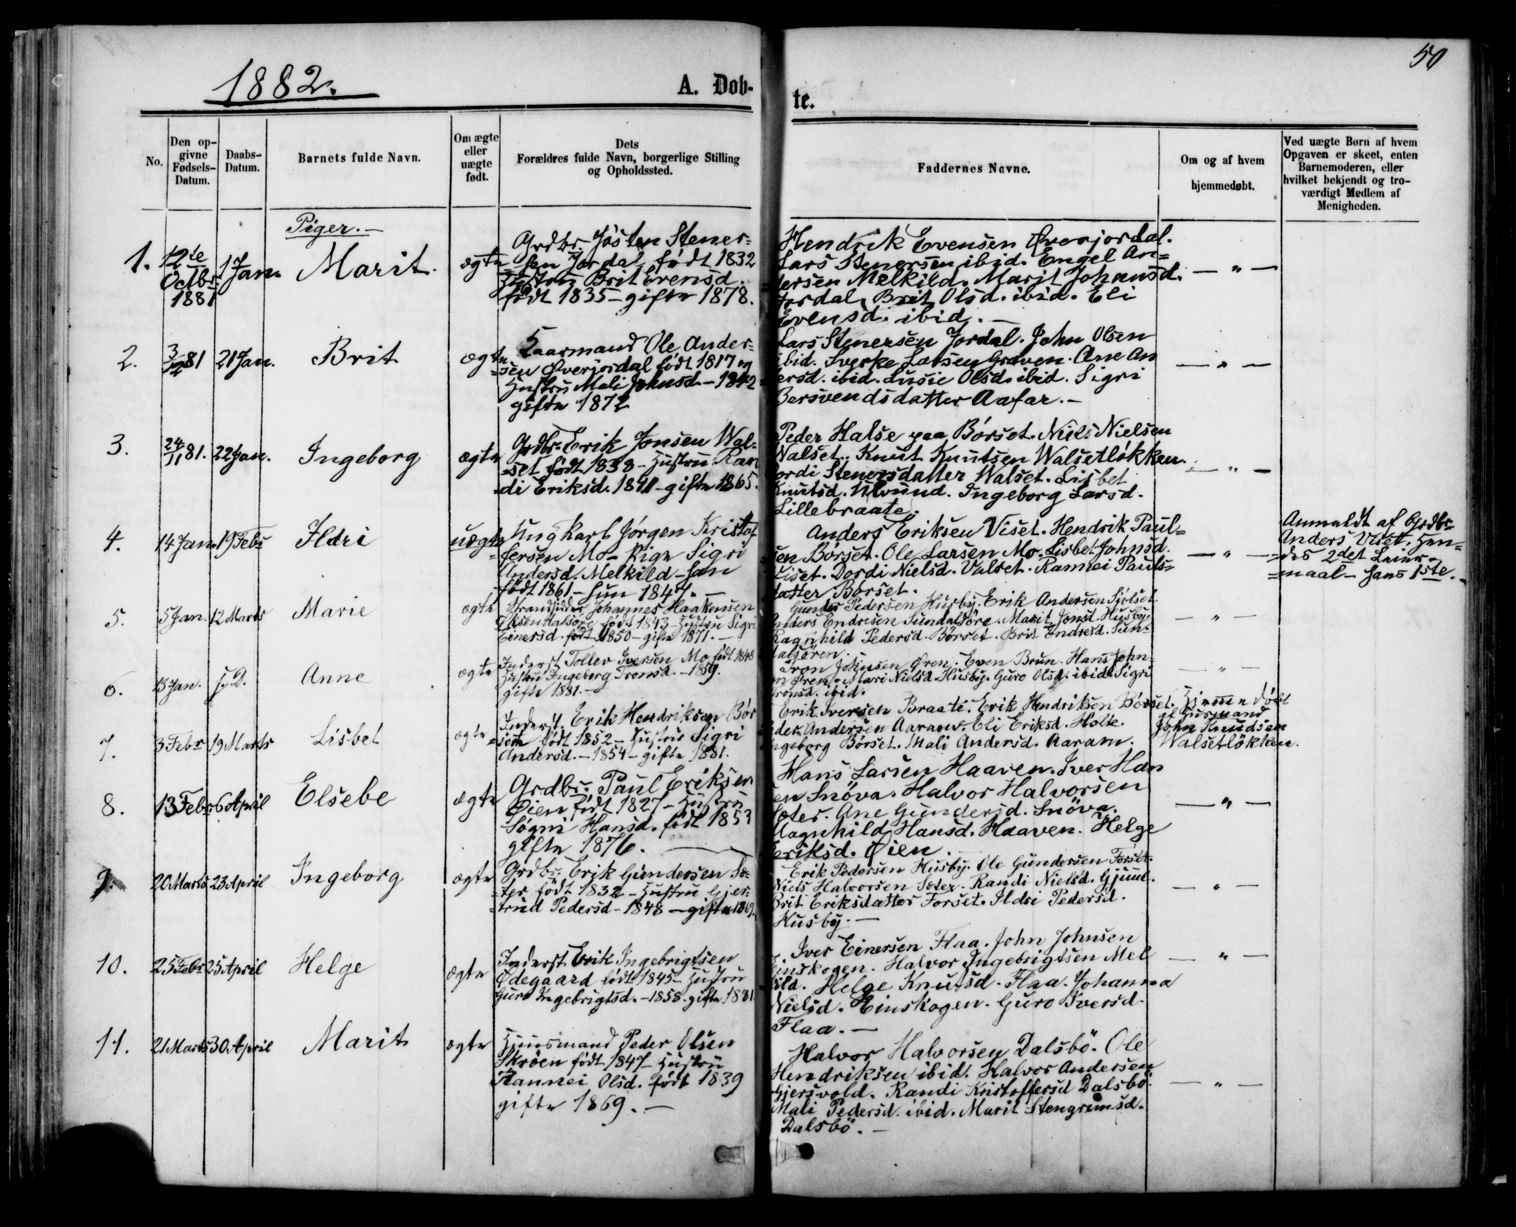 1882.
A. Dob-
te.
50
No.
Den op-
givne
Fødsels-
Datum.
Daabs-
Datum.
Barnets fulde Navn.
Om ægte
eller
uægte
født.
Dets
Forældres fulde Navn, borgerlige Stilling
og Opholdssted.
Faddernes Navne.
Om og af hvem
hjemmedøbt.
Ved uægte Børn af hvem
Opgaven er skeet, enten
Barnemoderen, eller
hvilket bekjendt og tro-
værdigt Medlem af
Menigheden.
Piger. —
1.
12te
Octbr
1881
1 Jan.
Marit.
ægte
Grdbr. Jøsten Stener-
sen Jordal, født 1832
Hustru Brit Evensd.
født 1835 — gifte 1878.
Hendrik Evensen Øverjordal.
Lars Stenersen ibid. Engel An-
dersen Melkild. Marit Johansd.
Jordal, Brit Olsd. ibid. Eli
Evensd. ibid. —
— " —
2.
3/12 81
21 Jan.
Brit
ægte
Kaarmand Ole Ander-
sen Øverjordal født 1817 og
Hustru Mali Johnsd. — 1842
gifte 1872
Lars Stenersen Jordal. John Olsen
ibid. Sverke Larsen Graven. Ane An
dersd. ibid. Lusie Olsd. ibid. Sigri
Bersvendsdatter Aafar. —
— " —
3.
24/11 81.
22 Jan.
Ingeborg
ægte
Grdbr. Erik Jonsen Wal-
set født 1833 — Hustru Ran
di Eriksd. 1841 — gifte 1865.
Peder Halse paa Børset. Niels Nielsen
Walset. Knut Knutsen Walsetløkken.
Dordi Stenersdatter Walset. Lisbet
Knutsd. Ulvund. Ingeborg Larsd.
Lillebraate.
— " —
4.
14 Jan.
19 Febr
Ildri
uægte
Ung Karl Jørgen Kristof
fersen Mo — Pige Sigri
Andersd. Melkild — han
født 1861 — hun 1847. —
Anders Eriksen Viset. Hendrik Paul-
sen Børset. Ole Larsen Mo. Lisbet Johnsd.
Viset. Dordi Nielsd. Valset. Rannei Pauls-
datter Børset.
— " —
Anmeldt af Grdbr.
Anders Viset. Hen-
des 2det Leier-
maal — hans 1ste. —
5.
5 Jan.
12 Marts
Marie
ægte
Strandsidder Johannes Haakensen
født 1843 — Hustru Sigri
Einersd. født 1850 — gifte 1871. —
Gunder Pedersen Husby. Erik Andersen
Anders Endresen Sundalsøre. Marit Jonsd. Husby.
Ragnhild Pedersd. Børset. Brit Endresd. Sun-
dalsøren.
— " —
6.
18 Jan.
s. D.
Anne
ægte
Inderst Toller Iversen Mo født 1848
Hustru Ingeborg Tronsd. — 1859.
gifte 1881. —
Tron Johnsen Øren. Even Brun. Hans John-
sen Øren. Mari Nielsd. Husby. Guro Olsd. ibid. Sigri
Tronsd. ibid.
— " —
7.
3 Febr
19 Marts
Lisbet
ægte
Inderst Erik Hendriksen Bør
set født 1852 — Hustru Sigri
Andersd. — 1854 — gifte 1881.
Erik Iversen Braate. Erik Hendriksen Børset.
Peder Andersen Aaram. Eli Eriksd. Holte.
Ingeborg Børset. Mali Andersd. Aaram.
Hjemmedøbt
af Husmand
John Knudsen
Walsetløkken.
8.
13 Febr
6 April
Elsebe
ægte
Grdbr. Paul Eriksen
Øien født 1827 — Hustru
Søgni Hansd. født 1853
gifte 1876. —
Hans Larsen Haaven. Iver Han
sen Snøva. Halvor Halvorsen
Soter. Ane Gundersd. Snøva.
Magnhild Hansd. Haaven. Helge
Eriksd. Øien.
— " —
9.
20 Marts
23 April
Ingeborg
ægte
Grdbr. Erik Gundersen So-
ter født 1832 — Hustru Gjer-
trud Pedersd — 1848 — gifte 1869.
Erik Pedersen Husby. Ole Gundersen Forset.
Niels Halvorsen Soter. Randi Nielsd. Gjuul.
Brit Eriksdatter Forset. Ildri Pedersd.
Husby. —
— " —
10.
25 Febr
25 April
Helge
ægte
Inderst Erik Ingebrigtsen
Ødegaard født 1845 — Hustru
Guro Ingebrigtsd. — 1858 — gifte 1881
Iver Einersen Flaa. John Johnsen
Einskogen. Halvor Ingebrigtsen Mel
kild. Helge Knutsd. Flaa. Johanna
Nielsd. Einskogen. Guro Iversd.
Flaa. —
— " —
11.
21 Marts
30 April
Marit
ægte
Huusmand Peder Olsen
Skrøen født 1847 — Hustru
Rannei Olsd. født 1839
gifte 1869. —
Halvor Halvorsen Dalsbö. Ole
Hendriksen ibid. Halvor Andersen
Gjersvold. Randi Kristoffersd Dalsbö.
Mali Pedersd. ibid. Marit Stengrimsd.
Dalsbö. —
— " —